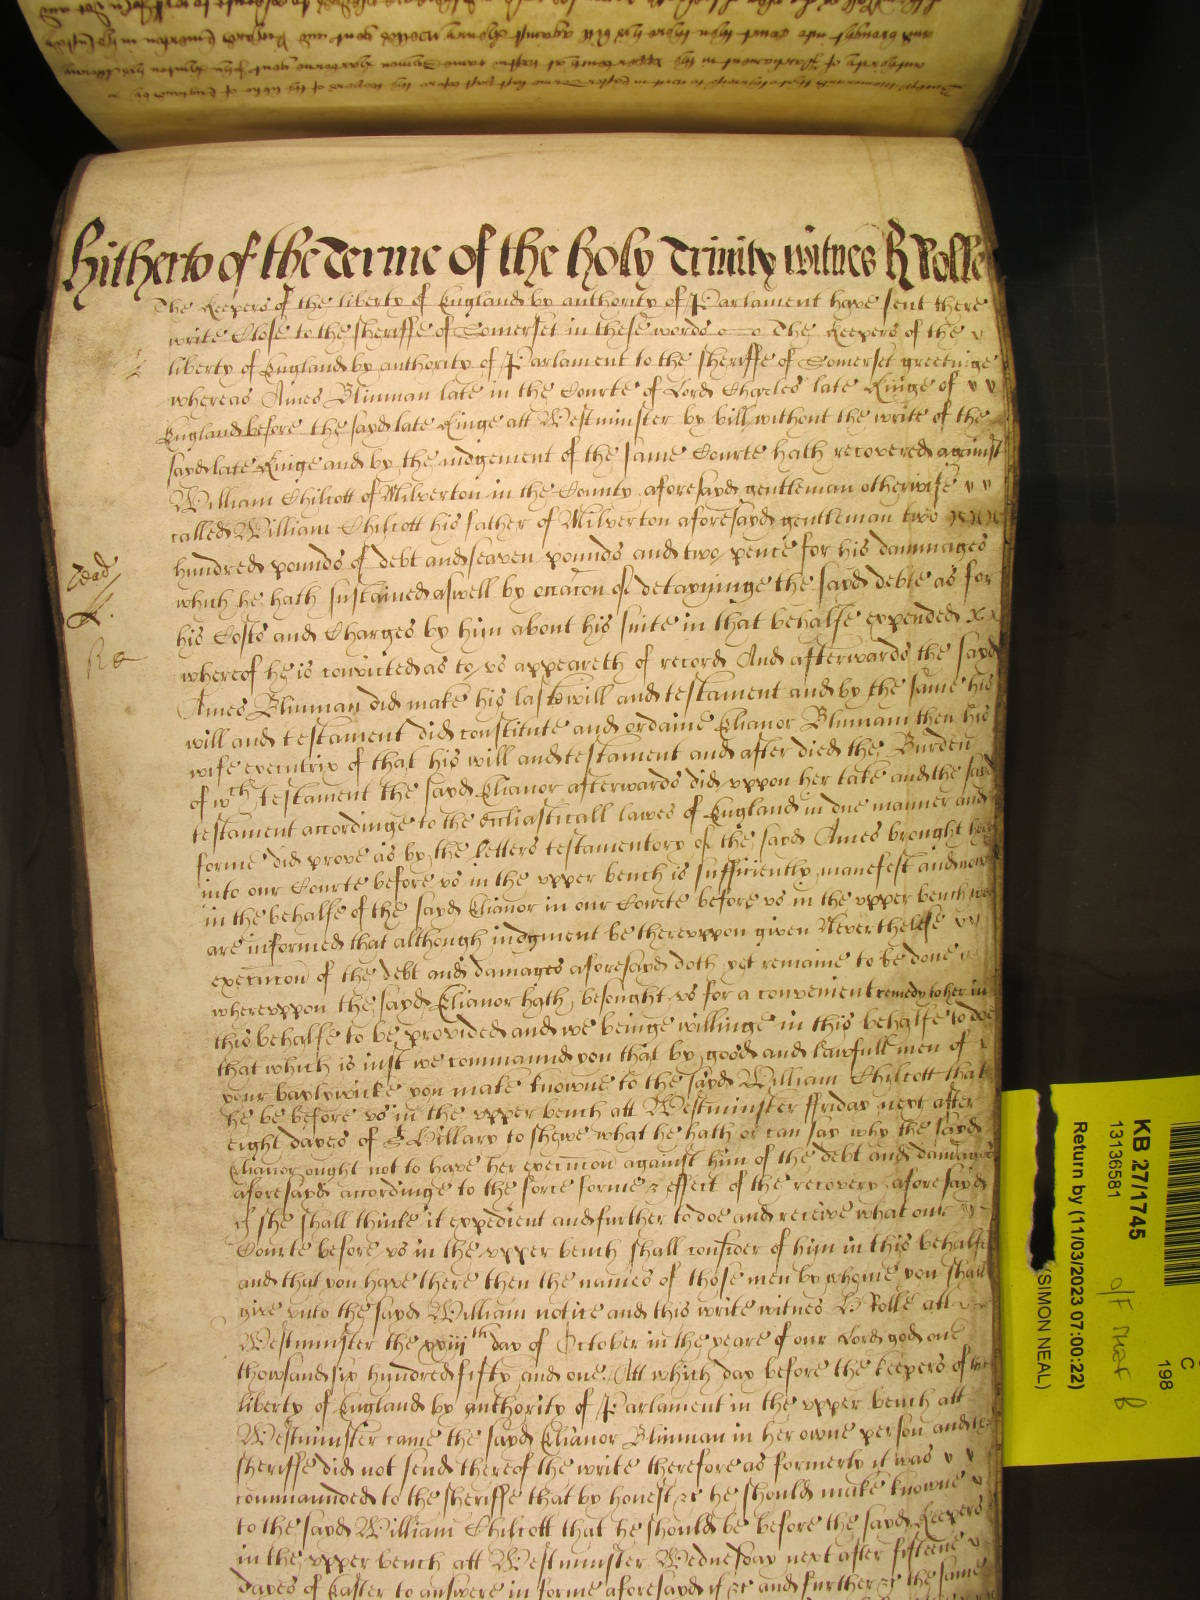 Hitherto of the Terme of the holy Trinity witnes H Rolle
The Keepers of the liberty of England by authority of Parlament have sent there
write Close to the sheriffe of Somerset in these words The Keepers of the
liberty of England by authority of Parlament to the sheriffe of Somerset greetinge
whereas Ames Blinman late in the Courte of Lord Charles late Kinge of
England before the sayd late Kinge att Westminster by bill without the write of the
sayd late Kinge and by the iudgement of the same Courte hath recovered against
William Chilcott of Milverton in the County aforesayd gentleman otherwise
called William Chilcott his father of Milverton aforesayd gentleman two
hundred pounds of debt and seaven pounds and two pence for his dammages
which he hath sustained aswell by occacon of detayninge the sayd debte as for
his Costs and Charges by him about his suite in that behalfe expended
whereof he is convicted as to us appeareth of record And afterwards the sayd
Ames Blinman did make his last will and testament and by the same his
will and testament did constitute and ordaine Elianor Blinman then his
wife executrix of that his will and testament and after died the Burden
of wch testament the sayd Elianor afterwards did uppon her take and the sayd
testament accordinge to the ecclīasticall lawes of England in due manner and
forme did prove as by the letters testamentory of the sayd Ames brought here
into our Courte before us in the upper bench is sufficiently manefest and now
in the behalfe of the sayd Elianor in our Courte before us in the upper bench wee
are informed that although iudgment be thereuppon given Neverthelesse
execucon of the debt and damages aforesayd doth yet remaine to be done
whereuppon the sayd Elianor hath besought us for a convenient remedy to her in
this behalfe to be provided and we beinge willinge in this behalfe to doe
that which is iust we command you that by good and lawfull men of
your baylywicke you make knowne to the sayd William Chilcott that
he be before us in the upper bench att Westminster ffriday next after
eight dayes of St Hillary to shewe what he hath or can say why the sayd
Elianor ought not to have her execucon against him of the debt and damages
aforesayd accordinge to the force forme & effect of the recovery aforesayd
if she shall thinke it expedient and further to doe and receive what our
Courte before us in the upper bench shall consider of him in this behalfe
and that you have there then the names of those men by whome you shall
give unto the sayd William notice and this write witnes H Rolle att
Westminster the xxiijth day of October in the yeare of our Lord god one
thowsand six hundred fifty and one. Att which day before the keepers of the
liberty of England by authority of Parlament in the upper bench att
Westminster came the sayd Elianor Blinman in her owne person and the
sheriffe did not send thereof the write therefore as formerly it was
commaunded to the sheriffe that by honest &c he should make knowne
to the sayd William Chilcott that he should be before the sayd Keepers
in the upper bench att Westminster Wednesday next after fifteene
dayes of Easter to answere in forme aforesayd if &c and further &c the same
KB 27/1745
13136581
Return by (11/03/2023 07:00:22)
(SIMON NEAL)
C
198